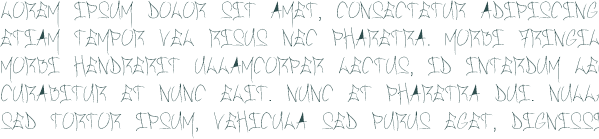 LOREM IPSUM DOLOR SIT AMET, CONSECTETUR ADIPISCING
ETIAM TEMPOR VEL RISUS NEC PHARETRA. MORBI FRINGIL
MORBI HENDRERIT ULLAMCORPER LECTUS, ID INTERDUM LE
CURABITUR ET NUNC ELIT. NUNC ET PHARETRA DUI. NULL
SED TORTOR IPSUM, VEHICULA SED PURUS EGET, DIGNISSI